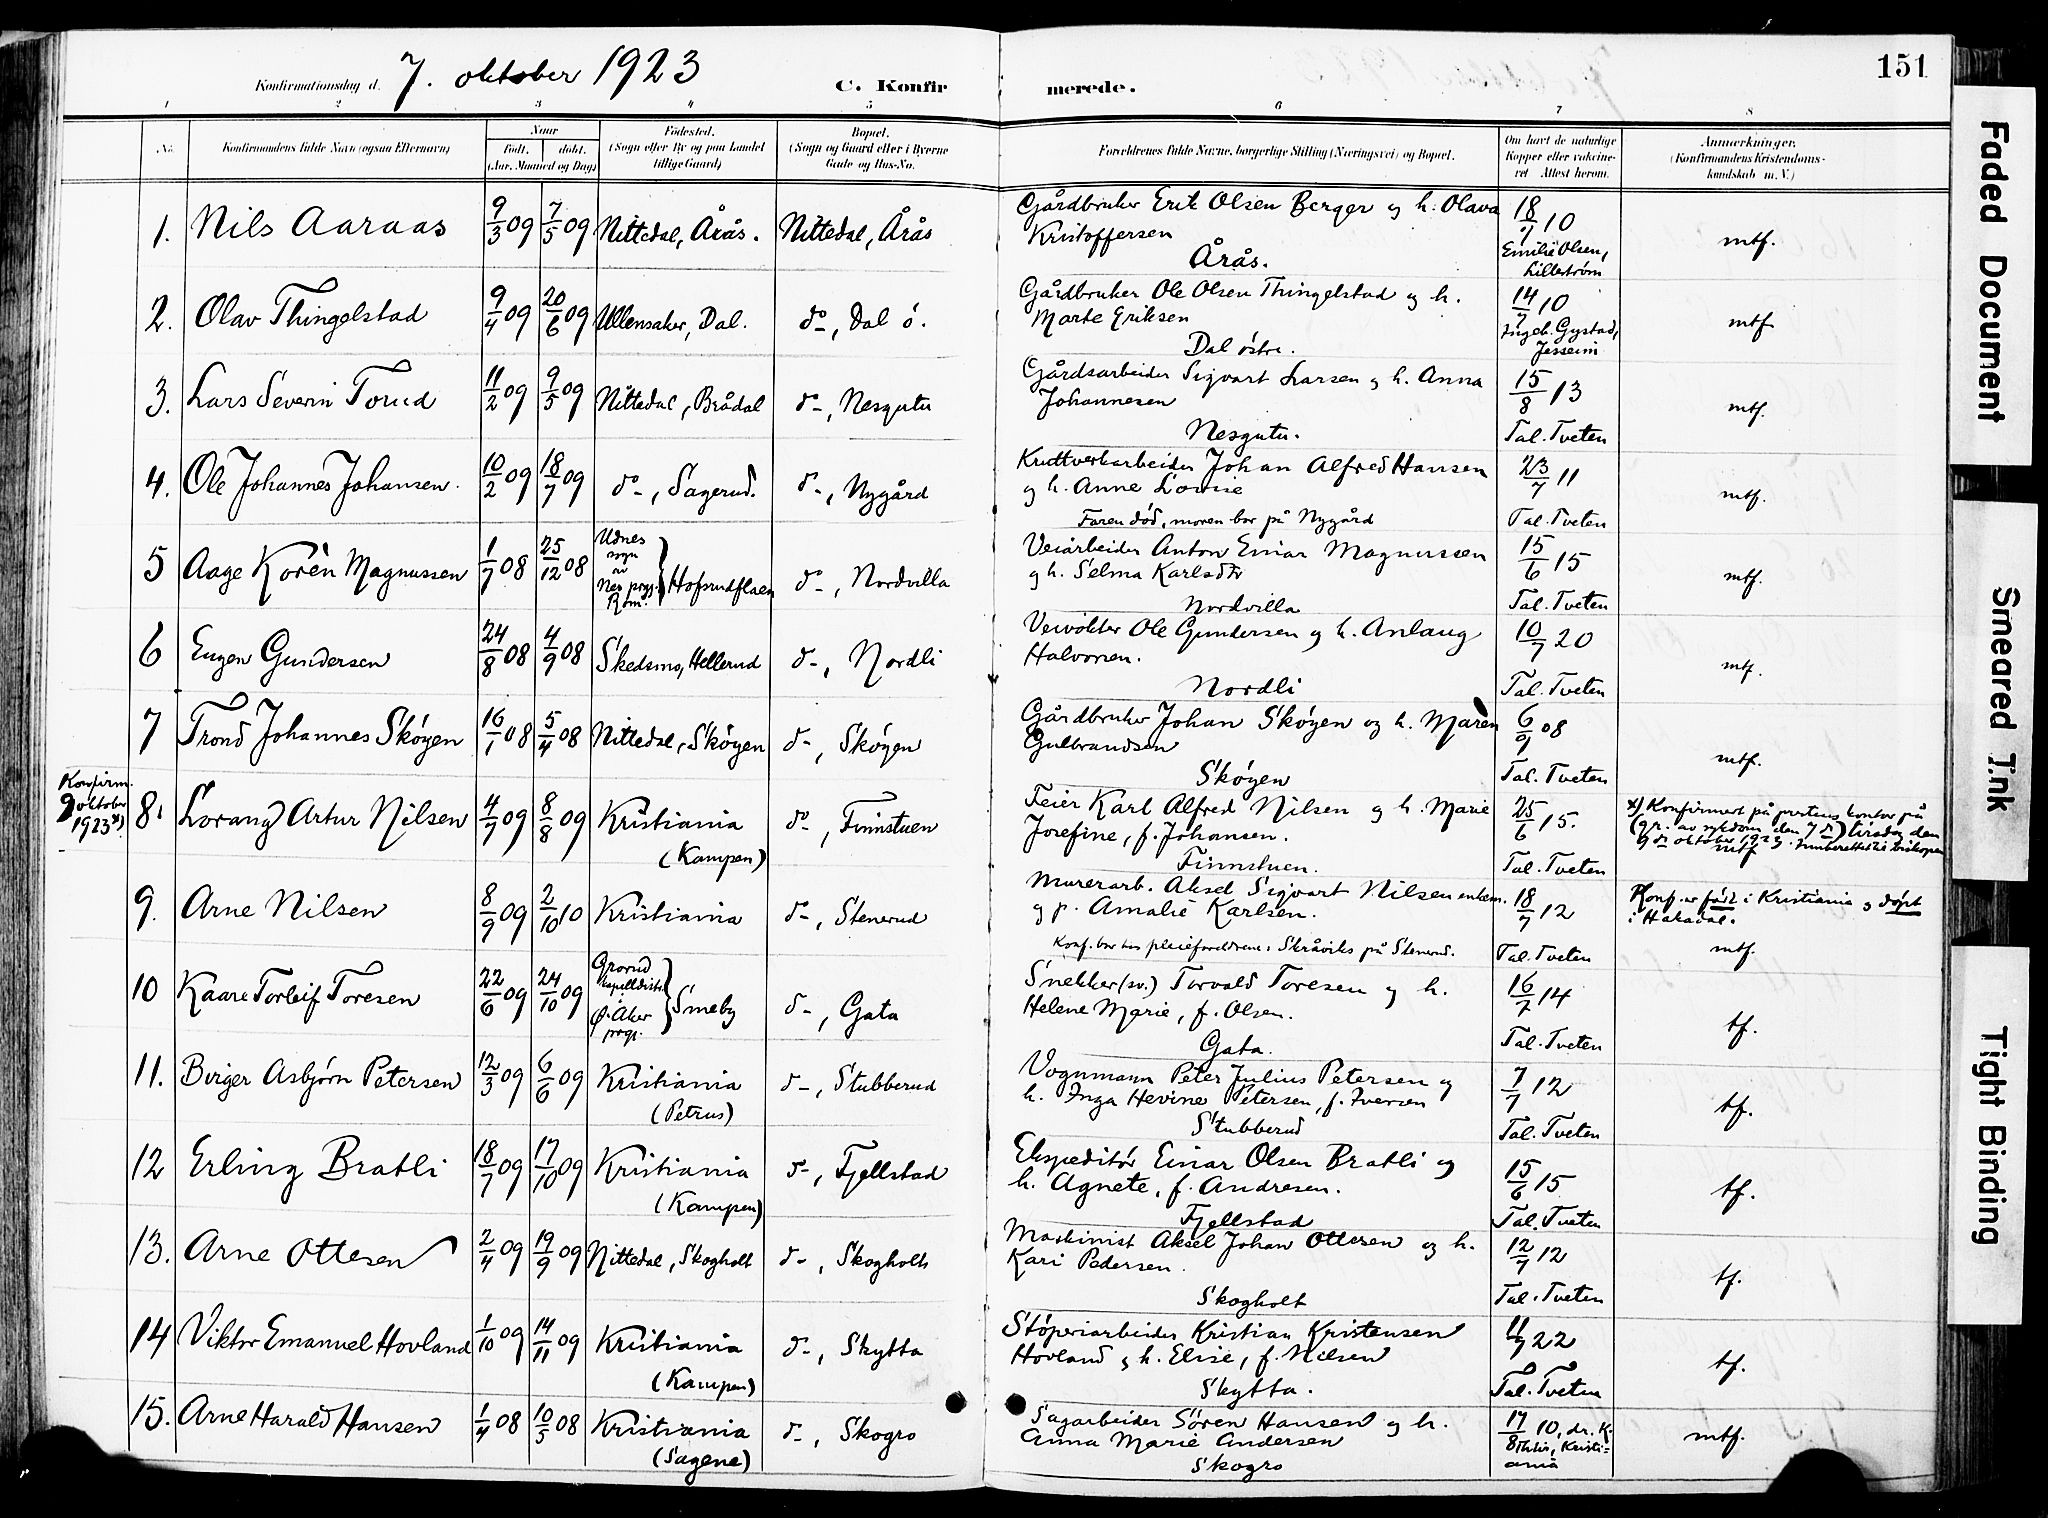 151
Konfirmationsdag d. 7. oktober 1923
C. Konfirmerede.
1 2 3 4 5 6 7 8
No.
Konfirmandens fulde Navn (ogsaa Efternavn)
Naar
født. døbt.
(Aar, Maaned og Dag)
Fødested.
(Sogn eller By og paa Landet
tillige Gaard)
Bopæl.
(Sogn og Gaard eller i Byerne
Gade og Hus-No.
Forældrenes fulde Navne, borgerlige Stilling (Næringsvei) og Bopæl.
Om havt de naturlige
Kopper eller vaccine-
ret Attest herom.
Anmærkninger.
(Konfirmandens Kristendoms-
kundskab m. V.)
1. Nils Aaraas 9/3 09 7/5 09 Nittedal, Årås. Nittedal, Årås
Gårdbruker Erik Olsen Berger og h. Olava
Kristoffersen
Årås.
18/9 10
Emilie Olsen,
Lillestrøm
mtf.
2. Olav Thingelstad 9/4 09 20/6 09 Ullensaker, Dal. do-, Dal ö.
Gårdbruker Ole Olsen Thingelstad og h.
Marte Eriksen
Dal östre.
14/7 10
Ingeb. Gystad,
Jesseim
mtf
3. Lars Severin Torud 11/2 09 9/5 09 Nittedal, Brådal do-, Nesgutu
Gårdsarbeider Sigvart Larsen og h. Anna
Johannesen
Nesgutu.
15/8 13
Tal. Tveten
mtf.
4. Ole Johannes Johansen. 10/2 09 18/7 09 do-, Sagerud. do-, Nygård
Kruttverkarbeider Johan Alfred Hansen
og h. Anne Lovise
Faren död, moren bor på Nygård
23/7 11
Tal. Tveten
mtf.
5 Aage Korèn Magnussen 1/7 08 25/12 08
Udnes
sogn
av
Nes prgj.
Rom. } Hofsrudflaen do-, Nordvilla
Veiarbeider Anton Einar Magnussen
og h. Selma Karlsdtr
Nordvilla
15/6 15
Tal. Tveten
mtf.
6 Eugen Gundersen 24/8 08 4/9 08 Skedsmo, Hellerud do-, Nordli
Veivokter Ole Gundersen og h. Anlaug
Halvorsen.
Nordli
10/7 20
Tal. Tveten
mtf.
7 Trond Johannes Sköyen 16/1 08 5/4 08 Nittedal, Sköyen do-, Sköyen
Gårdbruker Johan Sköyen og h. Maren
Gulbrandsen
Sköyen
6/9 08
Tal. Tveten
mtf.
Konfirm.
9 oktober
1923 x)
8. Lorang Artur Nilsen 4/7 09 8/8 09 Kristiania
(Kampen) do-, Finnstuen
Feier Karl Alfred Nilsen og h. Marie
Josefine, f. Johansen.
Finnstuen.
25/6 15.
Tal. Tveten
x) Konfirmert på prestens kontor på
(gr. av sykdom den 7 d) tirsdag den
9 de oktober 1923. Innberettet til biskopen
mtf
9. Arne Nilsen 8/9 09 2/10 10 Kristiania do-, Stenerud
Murerarb. Aksel Sigvart Nilsen enkem.
og p. Amalie Karlsen.
Konf. bor hos pleieforeldrene: Skråviks på Stenerud.
18/7 12
Tal. Tveten
Konf. er født i Kristiania og döpt
i Hakadal.
mtf.
10 Kaare Torleif Toresen 22/6 09 24/10 09
Grorud
kapelldistr.
i
Ø. Aker
prgj. } Smeby do-, Gata
Snekker (sv.) Torvald Toresen og h.
Helene Marie, f. Olsen.
Gata.
16/7 14
Tal. Tveten
tf.
11. Birger Asbjørn Petersen 12/3 09 6/6 09 Kristiania
(Petrus) do-, Stubberud
Vognmann Peter Julius Petersen og
h. Inga Hevine Petersen, f. Iversen
Stubberud
7/7 12
Tal. Tveten
tf.
12 Erling Bratli 18/7 09 17/10 09 Kristiania
(Kampen) do-, Fjellstad
Ekspeditör Einar Olsen Bratli og
h. Agnete, f. Andresen.
Fjellstad
15/6 15
Tal. Tveten
tf.
13. Arne Ottesen 2/4 09 19/9 09 Nittedal, Skogholt do-, Skogholt
Maskinist Aksel Johan Ottesen og h.
Kari Pedersen.
Skogholt
12/7 12
Tal. Tveten
tf.
14 Viktor Emanuel Hovland 1/10 09 14/11 09 Kristiania
(Kampen) do-, Skytta
Stöperiarbeider Kristian Kristensen
Hovland og h. Elise, f. Nilsen
Skytta.
11/7 22
Tal. Tveten
tf.
15. Arne Harald Hansen 1/4 08 10/5 08 Kristiania
(Sagene) do-, Skogro
Sagarbeider Sören Hansen og h.
Anna Marie Andersen
Skogro
17/8 10, dr. K.
Kristi=
ania
mtf.
Faded Document
Smeared Ink
Tight Binding